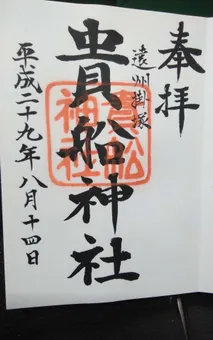 奉拝
遠州掛塚
貴船神社
貴船神社
平成二十九年八月十四日